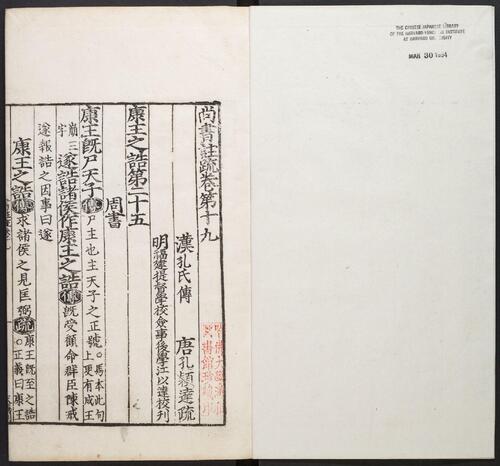 尚書註疏卷第十九
漢孔氏傳　唐孔穎達疏
明福建提督學校僉事後學江以達校刊
康王之誥第二十五
周書
康王既尸天子傳尸主也主天子之正號○馬本此句上更有成王
崩三字遂誥諸侯作康王之誥傳既受顧命群臣陳戒
遂報誥之因事曰遂
康王之誥傳求諸侯之見匡弼疏康王既至之誥○正義曰康王
THE CHINESE JAPANESE LIBRARY
OF THE HARVARD-YENCHING INSTITUTE
AT HARVARD UNIVERSITY
MAR 30 1954